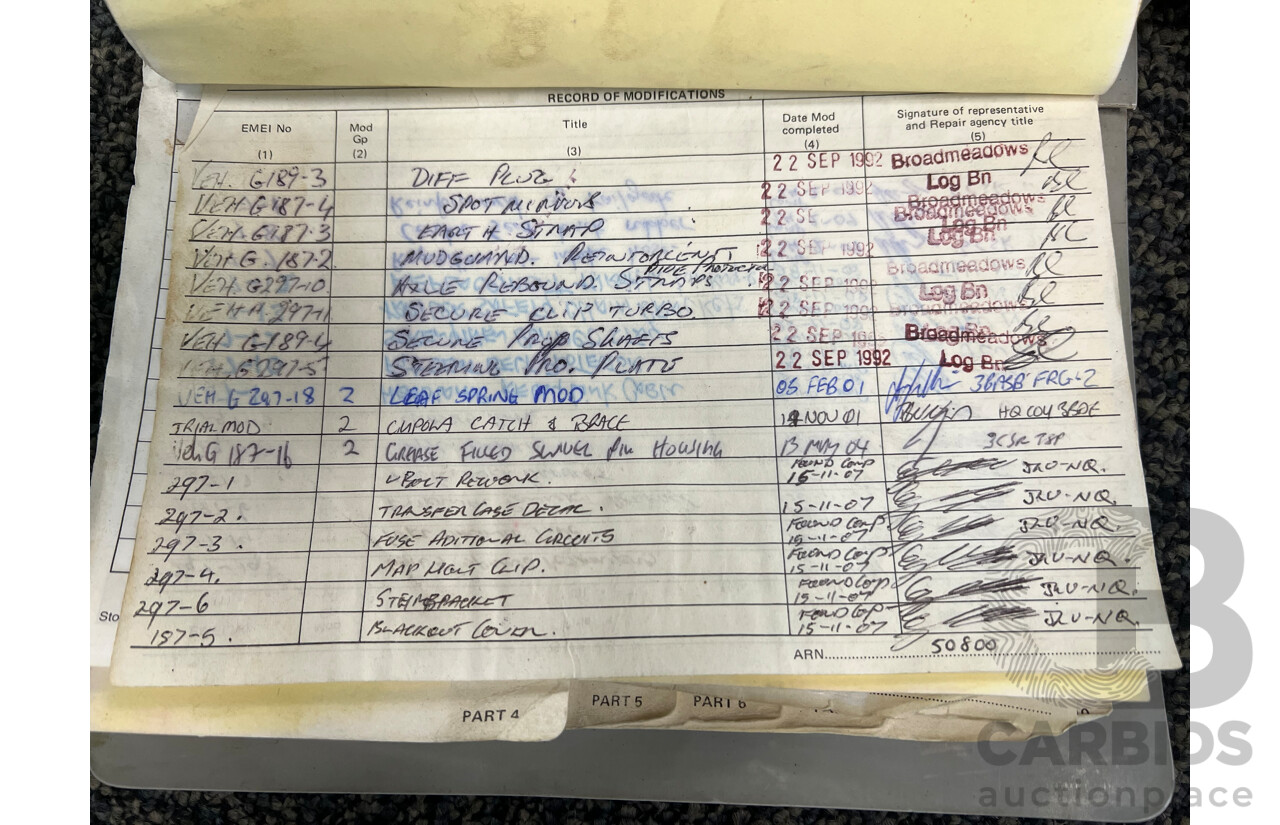 RECORD OF MODIFICATIONS
EMEI No Mod Gp Title Date Mod completed Signature of representative and Repair agency title
(1) (2) (3) (4) (5)
VEH. G189-3 DIFF PLUG 22 SEP 1992 Broadmeadows
VEH.G187-4 SPOT MIRRORS 22 SEP 1992 Log Bn
VEH.G187-3 EARTH STRAP 22 SEP Broadmeadows
VEH G. 187-2 MUDGUARD. 22 SEP 1992 Log Bn
VEH.G297-10 AXLE REBOUND. STRAPS 22 SEP 1992 Broadmeadows
VEH 297-11 SECURE CLIP TURBO 22 SEP 1992 Log Bn
VEH. G189-4 SECURE PROP SHAFTS 22 SEP Broadmeadows
VEH.G297-5 STEERING PRO. PLATE 22 SEP 1992 Log Bn
VEH-G 297-18 2 LEAF SPRING MOD 05 FEB 01
TRIAL MOD 2 CUPOLA CATCH & BRACE NOV 01
Veh G 187-16 2 GREASE FILLED SWIVEL PIN HOUSING 13 MAY 04
297-1 U BOLT REWORK. FOUND COMP 15-11-07 JLU-NQ.
297-2. TRANSFER CASE DECAL. 15-11-07 JLU-NQ.
297-3. FUSE ADITIONAL CIRCUITS FOUND COMP 15-11-07 JLU-NQ.
297-4. MAP LIGHT CLIP. FOUND COMP 15-11-07 JLU-NQ.
297-6 FOUND COMP 15-11-07 JLU-NQ.
187-5. BLACKOUT COVER. FOUND COMP 15-11-07 JLU-NQ.
ARN 50800
Sto
PART 4 PART 5 PART 6
CARBIDS
auctionplace